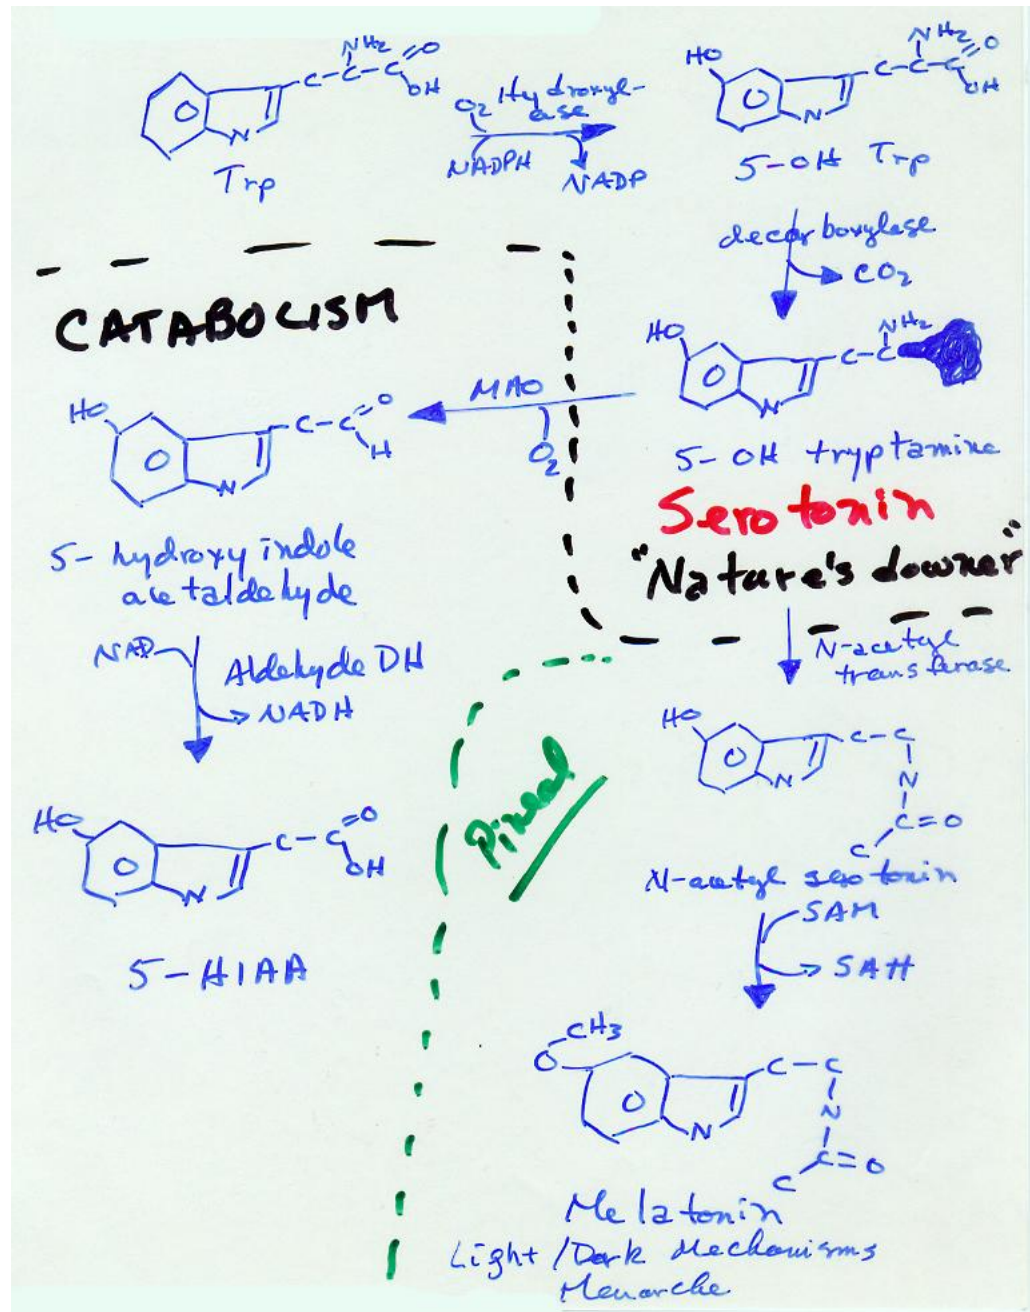 NH2
C-C-C
O
OH
N
Trp
O2
Hydroxyl-
ase
NADPH
NADP
HO
NH2
C-C-C
O
OH
N
5-OH Trp
decarboxylase
CO2
HO
NH2
C-C
N
5-OH tryptamine
Serotonin
"Nature's downer"
CATABOLISM
MAO
O2
HO
C-C
O
H
N
5-hydroxy indole
acetaldehyde
NAD
Aldehyde DH
NADH
HO
C-C
O
OH
N
5-HIAA
Pineal
N-acetyl
transferase
HO
C-C
N
N
C=O
C
N-acetyl serotonin
SAM
SAH
CH3
O
C-C
N
N
C=O
C
Melatonin
Light/Dark Mechanisms
Menarche